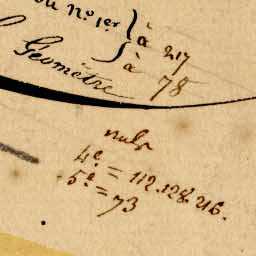 ou n.º 1.er } à 217
à 78
Géomètre
nuls
4.e = 112.128.216.
5.e = 73